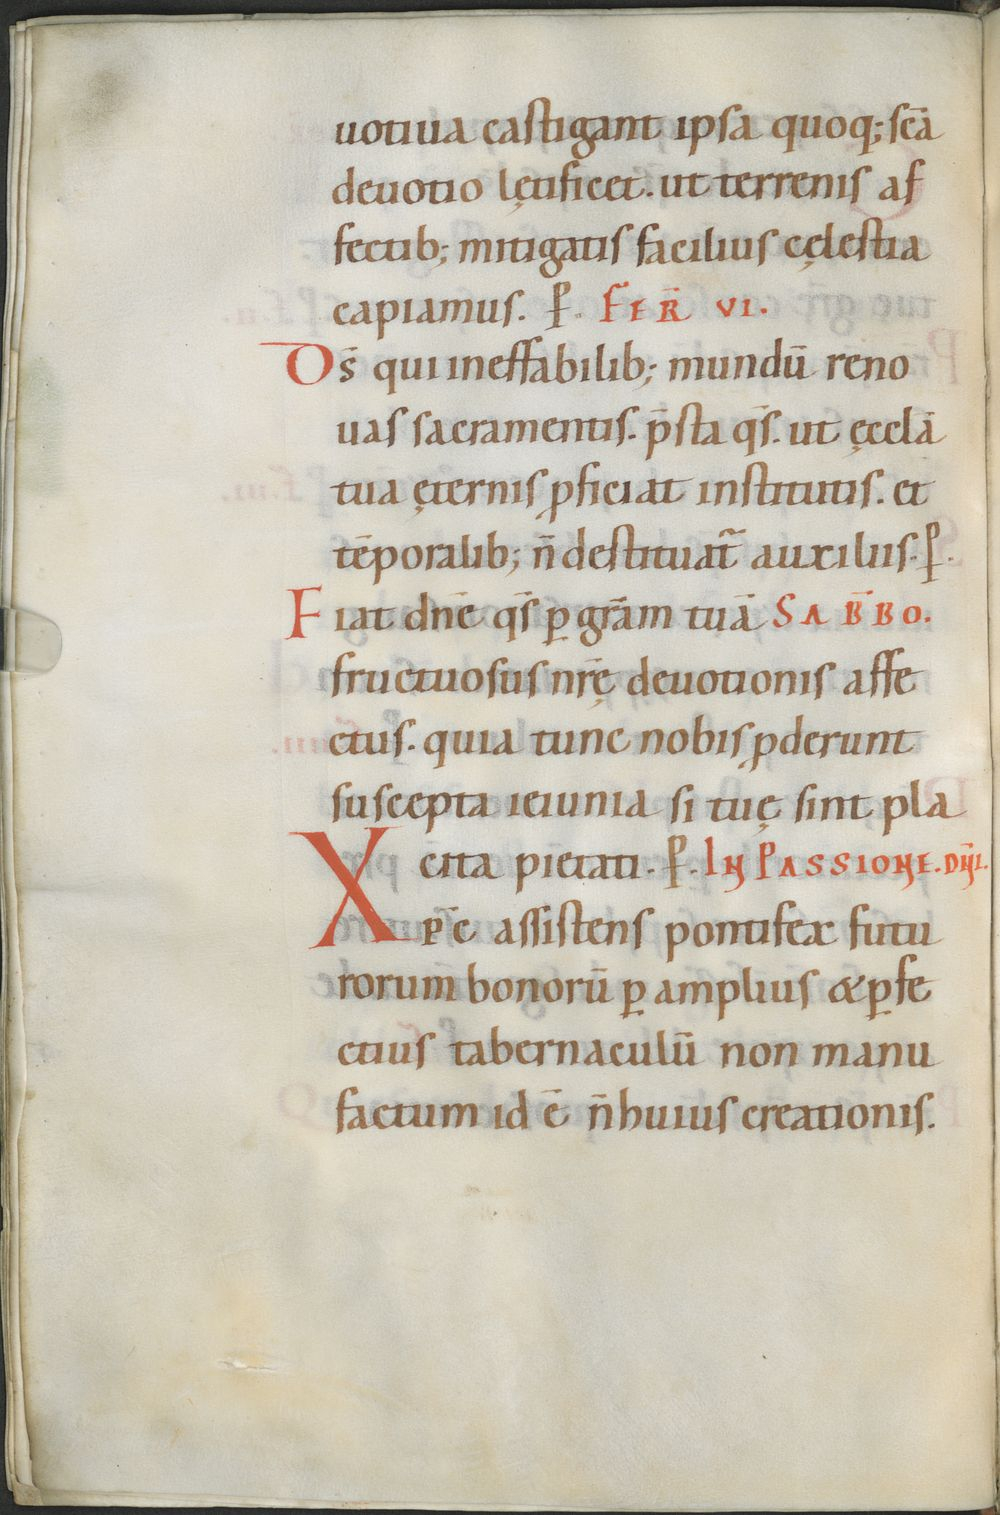 uotiua castigant ipsa quoq; scā
deuotio lętificet. ut terrenis af
fectib; mitigatis facilius cęlestia
capiamus. P̱. FER̄ VI.
Ds̄ qui ineffabilib; mundū reno
uas sacramentis. p̄sta qs̄. ut ęcclā
tua ęternis ꝓficiat institutis. et
tēporalib; n̄ destituat᷑ auxiliis. P̱.
Fiat dn̄e qs̄ ꝑ grām tuā SAB̄BO.
fructuosus nr̄ę deuotionis affe
ctus. quia tunc nobis ꝓderunt
suscepta ieiunia si tuę sint pla
cita pietati. P̱. IN PASSIONE. DN̄I.
Xp̄c assistens pontifex futu
rorum bonorū ꝑ amplius & ꝑfe
ctius tabernaculū non manu
factum id ē n̄ huius creationis.